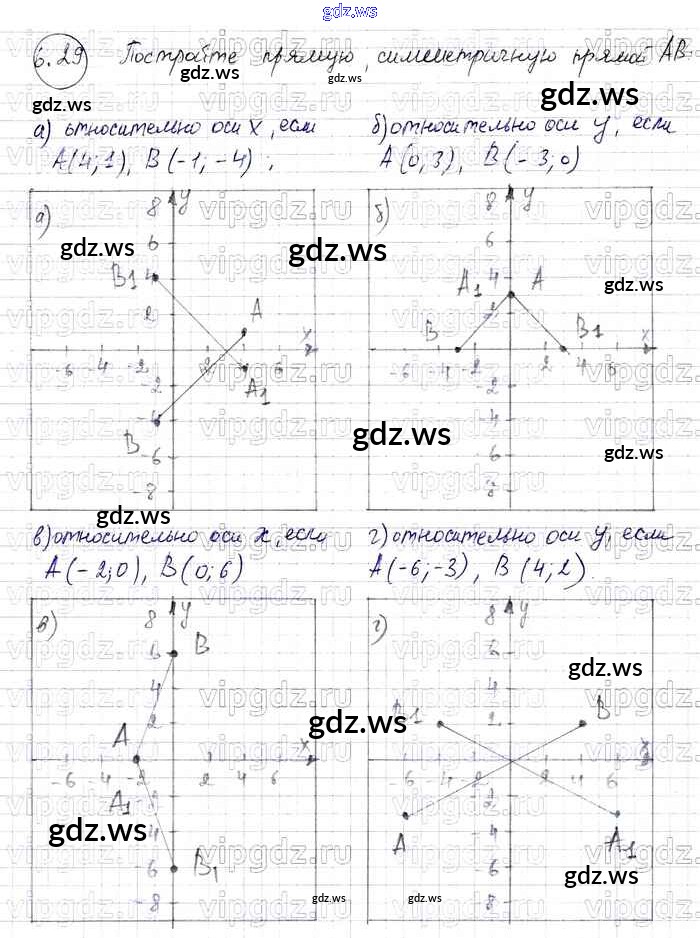 gdz.ws
6.29 Постройте прямую, симметричную прямой AB
gdz.ws gdz.ws gdz.ws
а) относительно оси x, если б) относительно оси y, если
A(4;1), B(-1;-4); A(0;3), B(-3;0)
а) 8 y б) 8 y
vipgdz.ru vipgdz.ru vipgdz.ru vipgdz.ru
gdz.ws 6 gdz.ws 6
B1 4 A1 4 A gdz.ws
2 A 2
x B B1 x
-6 -4 -2 2 6 -6 -4 -2 2 4 6
-2 A1 -2
-4 -4
B gdz.ws
-6 -6 gdz.ws
-8 -8
gdz.ws
в) относительно оси x, если г) относительно оси y, если
A(-2;0), B(0;6) A(-6;-3), B(4;2).
в) 8 y г) 8 y
6 B 6 gdz.ws
4 4
A 2 gdz.ws 1 2 B
x
-6 -4 -2 2 4 6 -6 -4 -2 2 4 6
A1
gdz.ws -4 A -4 A1
-6 B1 -6 gdz.ws
-8 gdz.ws gdz.ws -8 gdz.ws